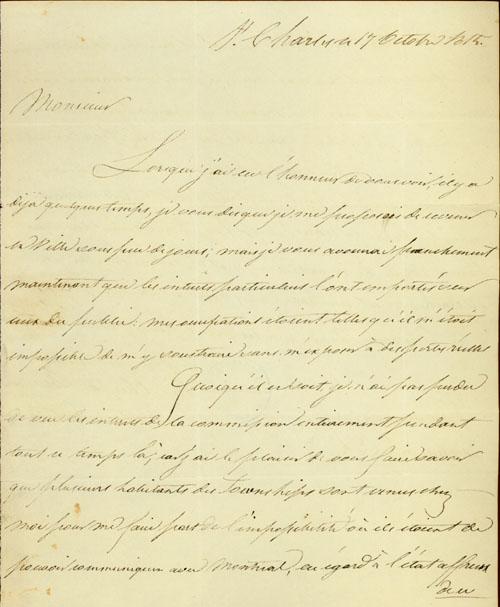 St. Charles le 17 Octobre 1815.
Monsieur
Lorsque j'ai eu l'honneur de vous voir, il y a
déja quelque temps, je vous dis que je me proposois de revenir
en Ville sous peu de jours; mais je vous avouerai franchement
maintenant que les intérêts particuliers l'ont emporté sur
ceux du public: mes occupations étoient telles qu'il m'étoit
impossible de m'y soustraire sans m'exposer à des pertes réelles
Quoiqu'il en soit, je n'ai pas perdu
de vue les intérêts de la commission entièrement pendant
tout ce temps là, car j'ai le plaisir de vous faire savoir
que plusieurs habitants des Townships sont venus chez
moi pour me faire part de l'impossibilité où ils étoient de
pouvoir communiquer avec Montréal, eu égard à l'état affreux